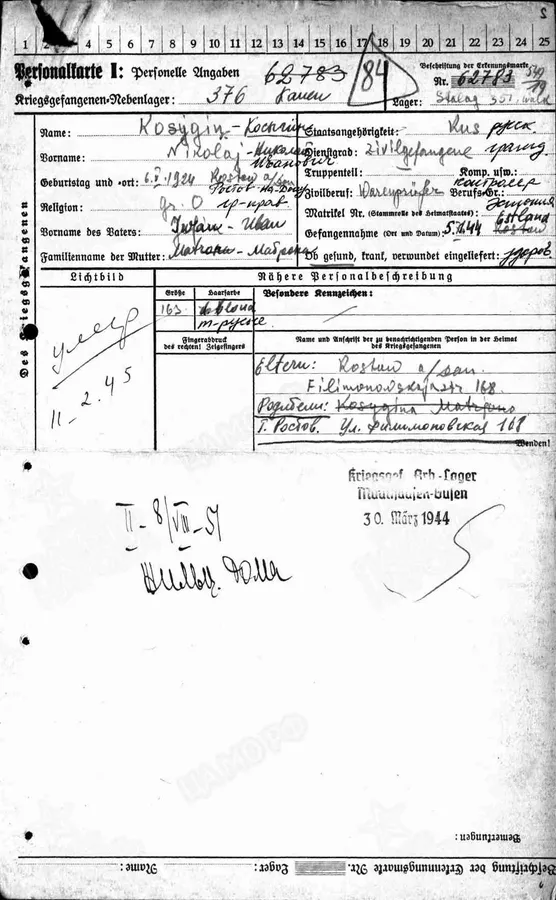 2
1 2 3 4 5 6 7 8 9 10 11 12 13 14 15 16 17 18 19 20 21 22 23 24 25
Personalkarte I: Personelle Angaben
62783
84
Beschriftung der Erkennungsmarke
Nr. 62783
Kriegsgefangenen-Nebenlager: 376 Kauen
Lager: Stalag
Des Kriegsgefangenen
Name: Kosygin - Косыгин
Staatsangehörigkeit: Rus русск.
Vorname: Nikolaj - Николай
Иванович
Dienstgrad: Zivilgefangene гражд
Truppenteil: Komp. usw.:
Geburtstag und -ort: 6.V.1924 Rostow a/Don
Ростов-на-Дону
Zivilberuf: Warenprüfer Berufs-Gr.: контролер
Religion: gr. O гр-прав
Matrikel Nr. (Stammrolle des Heimatstaates): Эстония
Estland
Vorname des Vaters: Iwan - Иван
Gefangennahme (Ort und Datum): 44 Rostow
Familienname der Mutter: Matrona - Матрона
Ob gesund, krank, verwundet eingeliefert: здоров
Lichtbild
Nähere Personalbeschreibung
Größe Haarfarbe Besondere Kennzeichen:
163 blond
т-русые
умер
11-2.45
Fingerabdruck
des rechten! Zeigefingers
Name und Anschrift der zu benachrichtigenden Person in der Heimat
des Kriegsgefangenen
Eltern: Rostow a/Don.
Filimonowskajastr 168.
Родители: Kosygina Matrona
г. Ростов. Ул. Филимоновская 168
Wenden!
Kriegsgef. Arb.-Lager
Mauthausen-Gusen
30. März 1944
II - 8/VIII - 51
ЦАМО РФ
Bemerkungen:
Beschriftung der Erkennungsmarke Nr. Lager: Name: